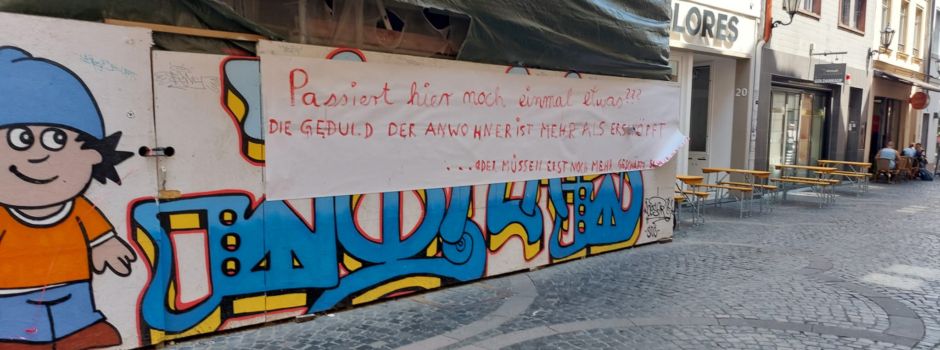 Passiert hier noch einmal etwas???
DIE GEDULD DER ANWOHNER IST MEHR ALS ERSCHÖPFT
...ODER MÜSSEN ERST NOCH MEHR GESCHÄFTE
LORES
20